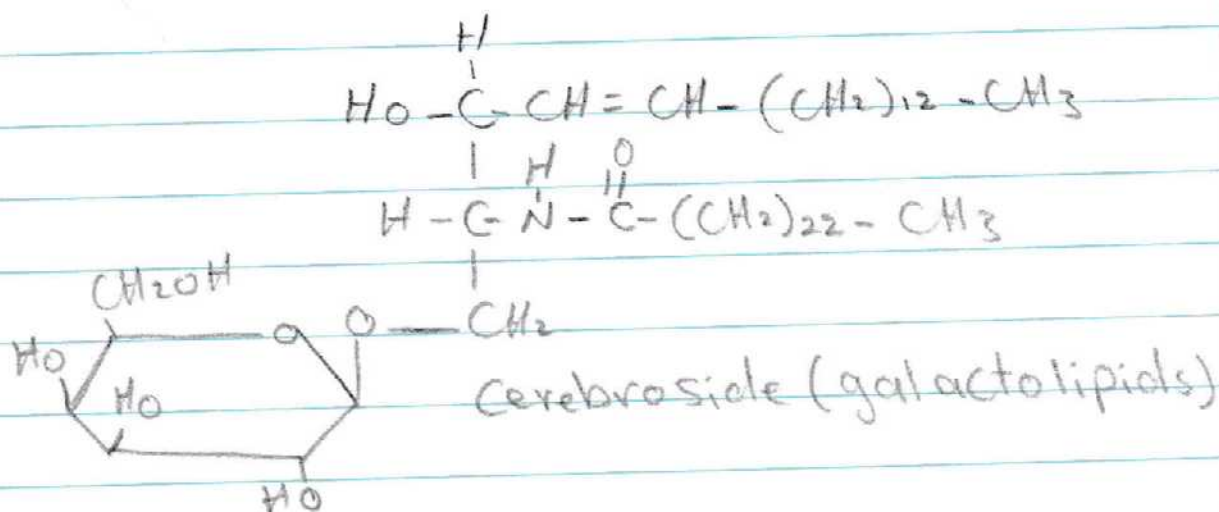 H
Ho - C - CH = CH - (CH2)12 - CH3
H O
H - C - N - C - (CH2)22 - CH3
CH2OH
O — CH2
O
Ho
Ho
Cerebroside (galactolipids)
HO